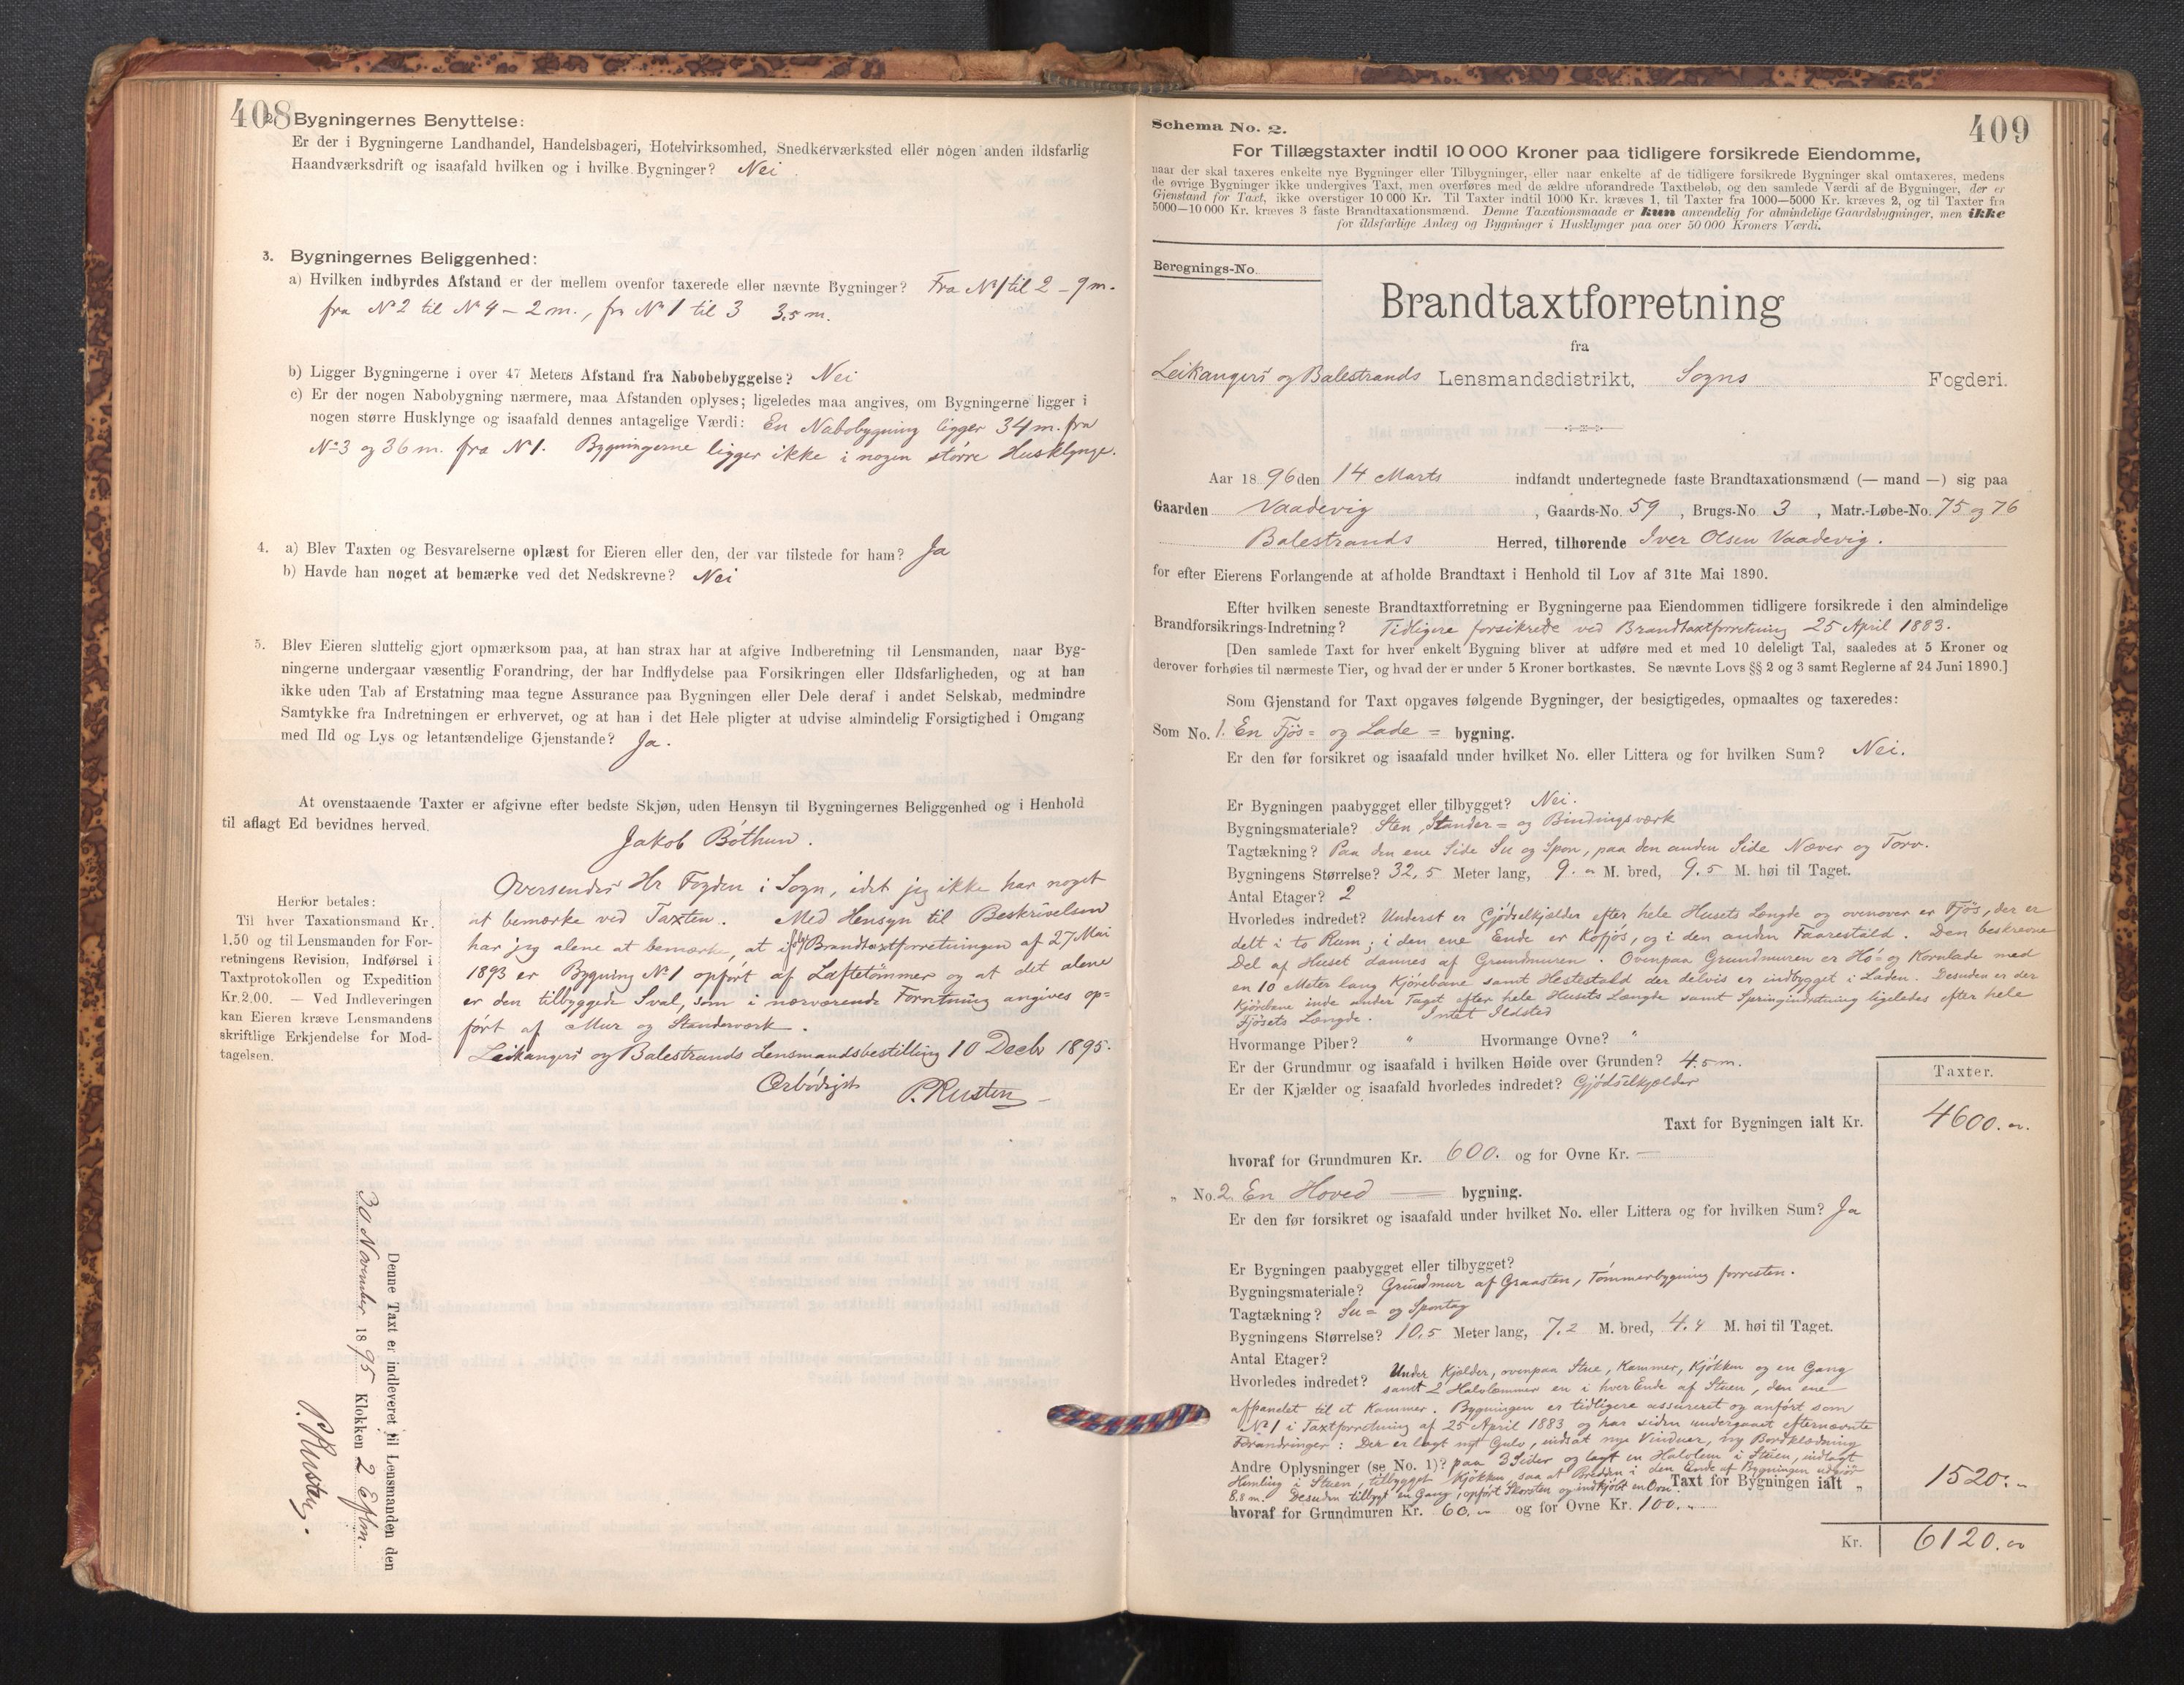 408
2. Bygningernes Benyttelse:
Er der i Bygningerne Landhandel, Handelsbageri, Hotelvirksomhed, Snedkerværksted eller nogen anden ildsfarlig
Haandværksdrift og isaafald hvilken og i hvilke Bygninger? Nei
3. Bygningernes Beliggenhed:
a) Hvilken indbyrdes Afstand er der mellem ovenfor taxerede eller nævnte Bygninger? Fra No 1 til 2 – 9 m.
fra No 2 til No 4 – 2 m., fra No 1 til 3 3,5 m.
b) Ligger Bygningerne i over 47 Meters Afstand fra Nabobebyggelse? Nei
c) Er der nogen Nabobygning nærmere, maa Afstanden oplyses; ligeledes maa angives, om Bygningerne ligger i
nogen større Husklynge og isaafald dennes antagelige Værdi: En Nabobygning ligger 34 m. fra
No 3 og 36 m. fra No 1. Bygningerne ligger ikke i nogen större Husklynge.
4. a) Blev Taxten og Besvarelserne oplæst for Eieren eller den, der var tilstede for ham? Ja
b) Havde han noget at bemærke ved det Nedskrevne? Nei
5. Blev Eieren sluttelig gjort opmærksom paa, at han strax har at afgive Indberetning til Lensmanden, naar Byg-
ningerne undergaar væsentlig Forandring, der har Indflydelse paa Forsikringen eller Ildsfarligheden, og at han
ikke uden Tab af Erstatning maa tegne Assurance paa Bygningen eller Dele deraf i andet Selskab, medmindre
Samtykke fra Indretningen er erhvervet, og at han i det Hele pligter at udvise almindelig Forsigtighed i Omgang
med Ild og Lys og letantændelige Gjenstande? Ja.
At ovenstaaende Taxter er afgivne efter bedste Skjøn, uden Hensyn til Bygningernes Beliggenhed og i Henhold
til aflagt Ed bevidnes herved.
Jakob Böthun.
Herfor betales:
Til hver Taxationsmand Kr.
1.50 og til Lensmanden for For-
retningens Revision, Indførsel i
Taxtprotokollen og Expedition
Kr. 2.00. — Ved Indleveringen
kan Eieren kræve Lensmandens
skriftlige Erkjendelse for Mod-
tagelsen.
Oversendes Hr Fogden i Sogn, idet jeg ikke har noget
at bemærke ved Taxten. Med Hensyn til Beskrivelsen
har jeg alene at bemærke, at ifölge Brandtaxtforretningen af 27 Mai
1893 er Bygning No 1 opfört af Laftetömmer og at det alene
er den tilbyggede Sval, som i nærværende Forretning angives op=
fört af Mur og Standerværk.
Leikangers og Balestrands Lensmandsbestilling 10 Decbr 1895.
Ærbödigst P. Rusten
Denne Taxt er indleveret til Lensmanden den
30 November 1895 Klokken 2 Eftm.
P. Rusten.
409
Schema No. 2.
For Tillægstaxter indtil 10 000 Kroner paa tidligere forsikrede Eiendomme,
naar der skal taxeres enkelte nye Bygninger eller Tilbygninger, eller naar enkelte af de tidligere forsikrede Bygninger skal omtaxeres, medens
de øvrige Bygninger ikke undergives Taxt, men overføres med de ældre uforandrede Taxtbeløb, og den samlede Værdi af de Bygninger, der er
Gjenstand for Taxt, ikke overstiger 10 000 Kr. Til Taxter indtil 1000 Kr. kræves 1, til Taxter fra 1000—5000 Kr. kræves 2, og til Taxter fra
5000—10 000 Kr. kræves 3 faste Brandtaxationsmænd. Denne Taxationsmaade er kun anvendelig for almindelige Gaardsbygninger, men ikke
for ildsfarlige Anlæg og Bygninger i Husklynger paa over 50 000 Kroners Værdi.
Beregnings-No.
Brandtaxtforretning
fra
Leikangers og Balestrands Lensmandsdistrikt, Sogns Fogderi.
Aar 1896 den 14 Marts indfandt undertegnede faste Brandtaxationsmænd (— mand —) sig paa
Gaarden Vaadevig, Gaards-No. 59, Brugs-No 3, Matr.-Løbe-No. 75 og 76
Balestrands Herred, tilhørende Iver Olsen Vaadevig.
for efter Eierens Forlangende at afholde Brandtaxt i Henhold til Lov af 31te Mai 1890.
Efter hvilken seneste Brandtaxtforretning er Bygningerne paa Eiendommen tidligere forsikrede i den almindelige
Brandforsikrings-Indretning? Tidligere forsikrede ved Brandtaxtforretning 25 April 1883.
[Den samlede Taxt for hver enkelt Bygning bliver at udføre med et med 10 deleligt Tal, saaledes at 5 Kroner og
derover forhøies til nærmeste Tier, og hvad der er under 5 Kroner bortkastes. Se nævnte Lovs §§ 2 og 3 samt Reglerne af 24 Juni 1890.]
Som Gjenstand for Taxt opgaves følgende Bygninger, der besigtigedes, opmaaltes og taxeredes:
Som No. 1. En Fjös= og Lade = bygning.
Er den før forsikret og isaafald under hvilket No. eller Littera og for hvilken Sum? Nei.
Er Bygningen paabygget eller tilbygget? Nei.
Bygningsmateriale? Sten, Stander= og Bindingsværk
Tagtækning? Paa den ene Side Su og Spon, paa den anden Side Næver og Torv.
Bygningens Størrelse? 32,5 Meter lang, 9. " M. bred, 9,5 M. høi til Taget.
Antal Etager? 2
Hvorledes indredet? Underst er Gjödselkjælder efter hele Husets Længde og ovenover er Fjös, der er
delt i to Rum; i den ene Ende er Kofjös, og i den anden Faarestald. Den beskrevne
Del af Huset dannes af Grundmuren. Ovenpaa Grundmuren er Hö- og Kornlade med
en 10 Meter lang Kjörebane samt Hestestald der delvis er indbygget i Laden. Desuden er der
Kjörebane inde under Taget efter hele Husets Længde samt Springindretning ligeledes efter hele
Fjösets Længde. Intet Ildsted
Hvormange Piber? " Hvormange Ovne? "
Er der Grundmur og isaafald i hvilken Høide over Grunden? 4.5 m.
Er der Kjælder og isaafald hvorledes indredet? Gjödselkjælder
Taxter.
Taxt for Bygningen ialt Kr. 4600. "
hvoraf for Grundmuren Kr. 600. og for Ovne Kr. —
" No. 2. En Hoved — bygning.
Er den før forsikret og isaafald under hvilket No. eller Littera og for hvilken Sum? Ja
Er Bygningen paabygget eller tilbygget?
Bygningsmateriale? Grundmur af Graasten, Tömmerbygning forresten.
Tagtækning? Su= og Spontag
Bygningens Størrelse? 10,5 Meter lang, 7.2 M. bred, 4.4 M. høi til Taget.
Antal Etager?
Hvorledes indredet? Under Kjælder, ovenpaa Stue, Kammer, Kjökken og en Gang
samt 2 Halvlemmer en i hver Ende af Stuen, den ene
afpanelet til et Kammer. Bygningen er tidligere assureret og anfört som
No 1 i Taxtforretning af 25 April 1883 og har siden undergaaet efternævnte
Forandringer: Der er lagt nyt Gulv, indsat nye Vinduer, ny Bordklædning
Andre Oplysninger (se No. 1)? paa 3 Sider og lagt en Halvlem i Stuen, indlagt
Himling i Stuen, tilbygget Kjökken, saa at Bredden i den Ende af Bygningen udgjör
8.8 m. Desuden tilbygt en Gang, opfört Skorsten og indkjöbt en Ovn. Taxt for Bygningen ialt " 1520. "
hvoraf for Grundmuren Kr. 60. " og for Ovne Kr. 100. "
Kr. 6120. "